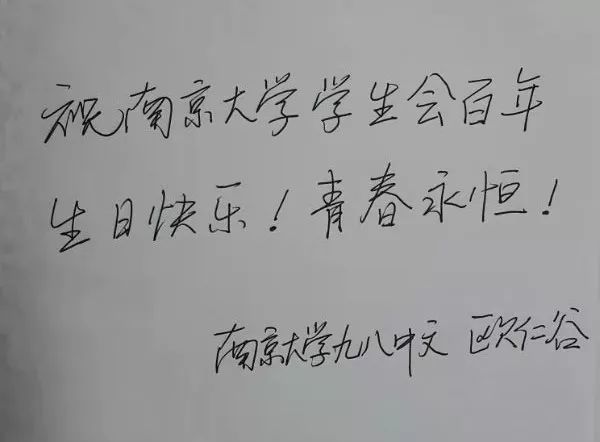 祝南京大学学生会百年
生日快乐！青春永恒！
南京大学九八中文 欧仁谷